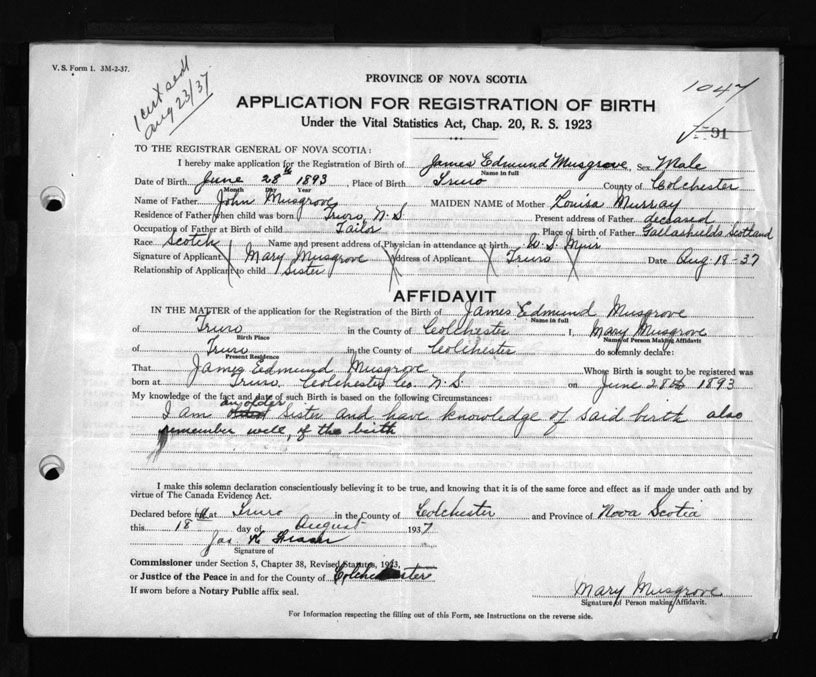 V. S. Form 1. 3M-2-37.
1 cert sent
Aug 23/37
1047
791
PROVINCE OF NOVA SCOTIA
APPLICATION FOR REGISTRATION OF BIRTH
Under the Vital Statistics Act, Chap. 20, R. S. 1923
TO THE REGISTRAR GENERAL OF NOVA SCOTIA:
I hereby make application for the Registration of Birth of James Edmund Musgrove, Sex Male
Name in full
Date of Birth June 28th 1893, Place of Birth Truro County of Colchester
Month Day Year
Name of Father John Musgrove MAIDEN NAME of Mother Louisa Murray
Residence of Father when child was born Truro, N.S. Present address of Father deceased
Occupation of Father at Birth of child Tailor Place of birth of Father Gallashields Scotland
Race Scotch Name and present address of Physician in attendance at birth W. S. Muir
Signature of Applicant Mary Musgrove Address of Applicant Truro Date Aug 18-37
Relationship of Applicant to child Sister
AFFIDAVIT
IN THE MATTER of the application for the Registration of the Birth of James Edmund Musgrove
Name in full
of Truro in the County of Colchester I, Mary Musgrove
Birth Place Name of Person Making Affidavit
of Truro in the County of Colchester do solemnly declare:
Present Residence
That James Edmund Musgrove Whose Birth is sought to be registered was
born at Truro, Colchester Co. N.S. on June 28th 1893
My knowledge of the fact and date of such Birth is based on the following Circumstances:
I am an older sister and have knowledge of said birth also
remember well, of the birth
I make this solemn declaration conscientiously believing it to be true, and knowing that it is of the same force and effect as if made under oath and by
virtue of The Canada Evidence Act.
Declared before me at Truro in the County of Colchester and Province of Nova Scotia
this 18 day of August 1937
Jas
Signature of
Commissioner under Section 5, Chapter 38, Revised Statutes, 1923,
or Justice of the Peace in and for the County of Colchester
If sworn before a Notary Public affix seal.
Mary Musgrove
Signature of Person making Affidavit.
For Information respecting the filling out of this Form, see Instructions on the reverse side.